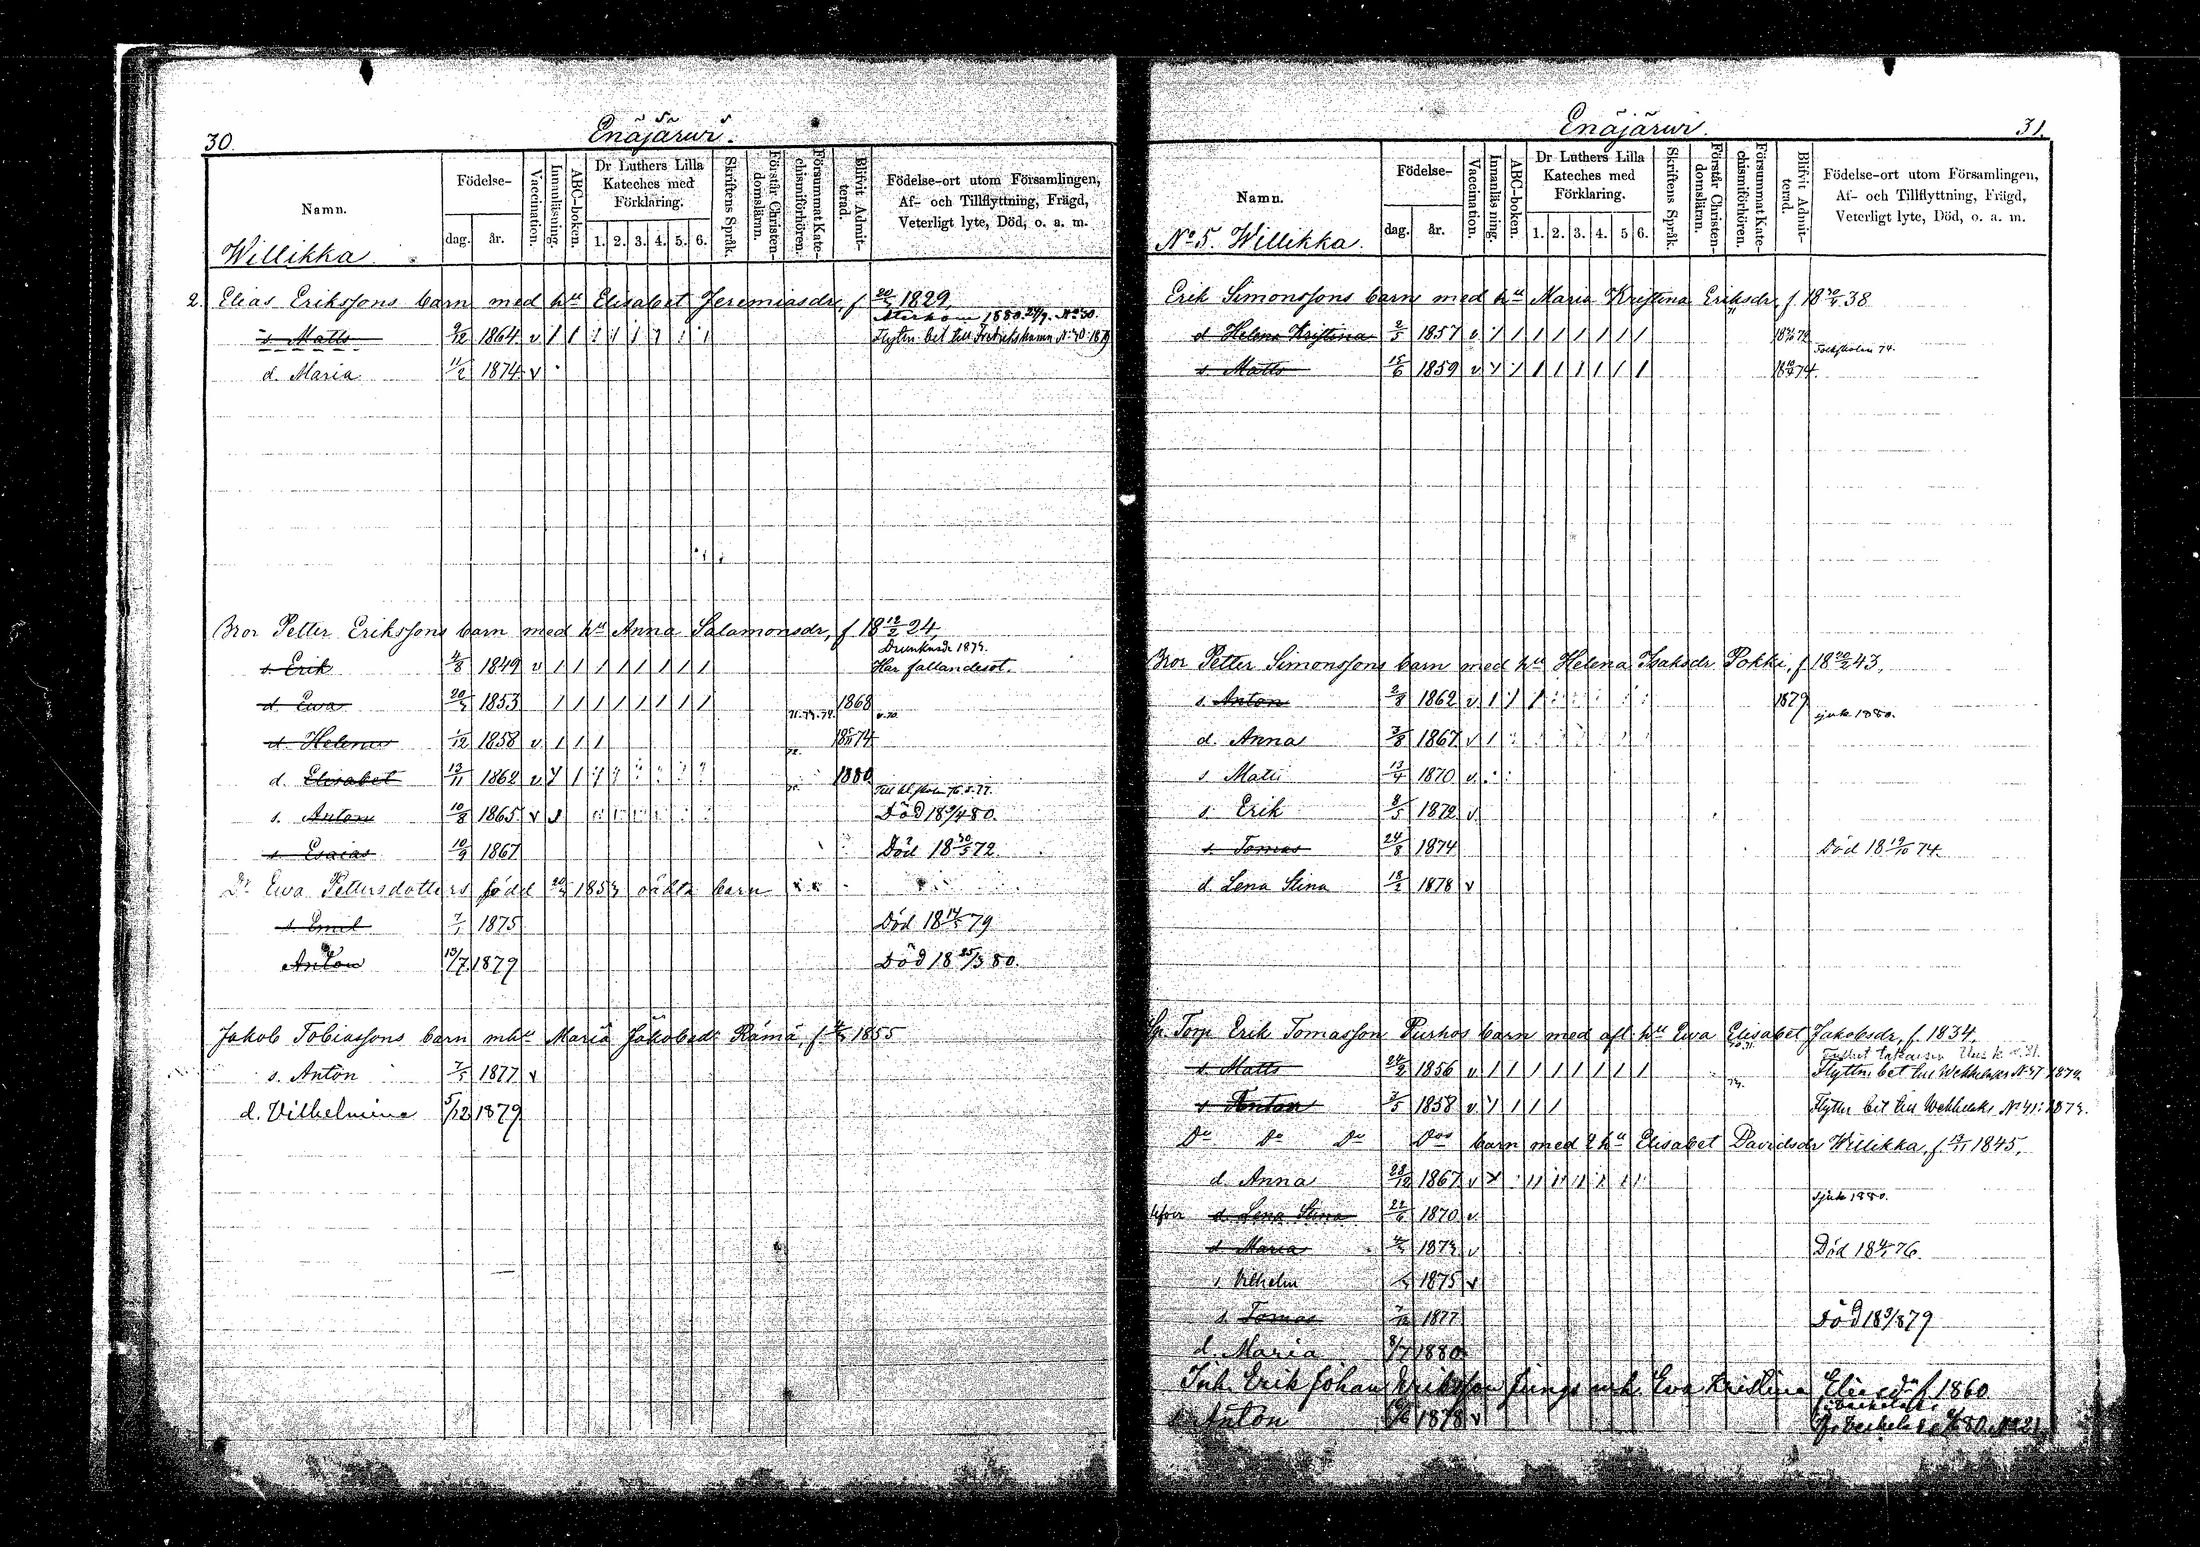 30.
Enäjärwi.
Namn.
Födelse-
dag.
år.
Vaccination.
Innanläsning.
ABC-boken.
Dr Luthers Lilla
Kateches med
Förklaring.
1. 2. 3. 4. 5. 6.
Skriftens Språk.
Förstår Christen-
domsläran.
Försummat Kate-
chismiförhören.
Blifvit Admit-
terad.
Födelse-ort utom Församlingen,
Af- och Tillflyttning, Frägd,
Veterligt lyte, Död, o. a. m.
Willikka
2. Elias Erikssons barn med hu Elisabet Jeremiasdr, f 1829.
Återkom 1880
s. Matts 9/12 1864 v Flyttn. bet till Fredrikshamn
d. Maria 11/2 1874 v
Bror Petter Erikssons barn med hu Anna Salamonsdr, f 18 12/2 24,
s. Erik 4/8 1849 v Har fallandesot.
d Ewa 1853 1868
71. 73. 74.
d. Helena 1/12 1858 v 74
d. Elisabet 13/11 1862 v 1880
s. Anton 10/8 1865 v Död 18 9/4 80.
s Esaias 10/9 1867 Död 18 30/5 72.
Dr Ewa Pettersdotters född 1853 oäkta barn
s. Emil 7/1 1875 Död 79
Anton 13/7 1879 Död 18 25/3 80.
Jakob Tobiassons barn mhu Maria Jakobsdr Rämä, f 1855
s. Anton 1877 v
d. Vilhelmina 5/12 1879
Enäjärwi.
31.
Namn.
Födelse-
dag.
år.
Vaccination.
Innanläsning.
ABC-boken.
Dr Luthers Lilla
Kateches med
Förklaring.
1. 2. 3. 4. 5 6.
Skriftens Språk.
Förstår Christen-
domsläran.
Försummat Kate-
chismiförhören.
Blifvit Admit-
terad.
Födelse-ort utom Församlingen,
Af- och Tillflyttning, Frägd,
Veterligt lyte, Död, o. a. m.
No 5. Willikka.
Erik Simonssons barn med hu Maria Kristina Eriksdr, f 18 38
d Helena Kristina 2/5 1857 v
s. Matts 15/6 1859 v 74.
Bror Petter Simonssons barn med hu Helena Isaksdr Pokki, f 18 20/2 43,
s. Anton 2/8 1862 v 1879
sjuk 1880.
d. Anna 3/8 1867 v
s Matts 13/4 1870 v.
s. Erik 8/5 1872 v
s. Tomas 24/8 1874 Död 18 19/10 74.
d. Lena Stina 18/2 1878 v
Torp Erik Tomasson Purhos barn med afl. hu Ewa Elisabet Jakobsdr, f. 1834.
s. Matts 24/2 1856 v Flyttn. bet till
s Anton 3/5 1858 v Flyttn bet till
Do Do Do Dos barn med 2 hu Elisabet Davidsdr Willikka, f. 1845,
d. Anna 28/12 1867 v
sjuk 1880.
d. Lena Stina 22/6 1870 v.
d Maria 1873 v Död 76.
s. Vilhelm 1875 v
s. Tomas 1877 Död 18 9/8 79
d. Maria 8/7 1880
Inh. Erik Johan Eriksson mh. Eva Kristina Eliasdr f. 1860
s Anton 1878 v 80. No 21.